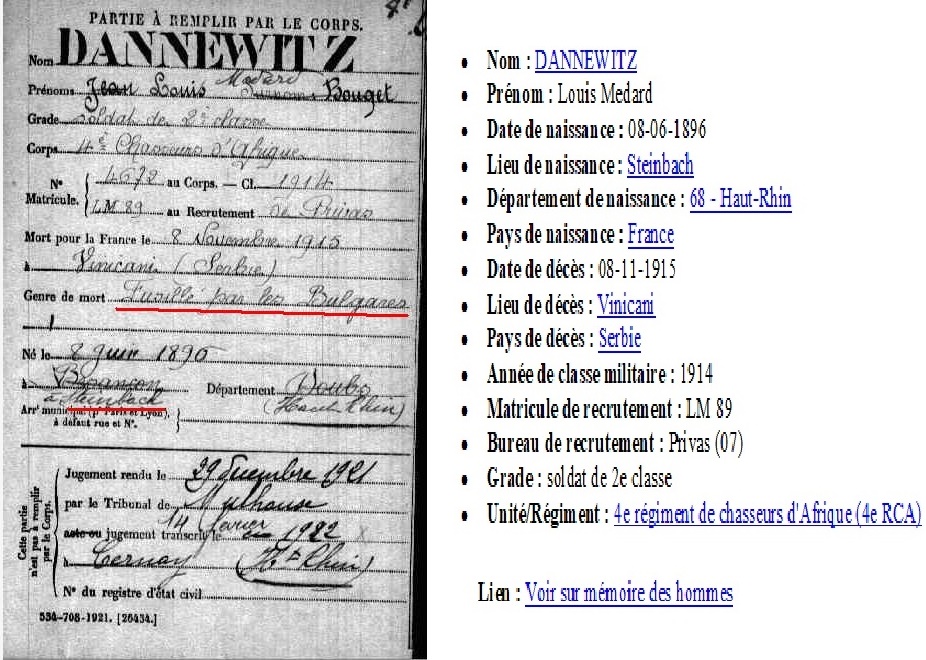 PARTIE À REMPLIR PAR LE CORPS.
Nom DANNEWITZ
Prénoms Jean Louis Medard Surnom Bouget
Grade Soldat de 2e classe
Corps 4e Chasseurs d'Afrique
N° Matricule. 4672 au Corps. — Cl. 1914
LM 89 au Recrutement de Privas
Mort pour la France le 8 Novembre 1915
à Vinicani (Serbie)
Genre de mort Fusillé par les Bulgares
Né le 8 Juin 1896
à Besançon Département Doubs
à Steinbach (Haut Rhin)
Arr' municipal (p' Paris et Lyon), à défaut rue et N°.
Cette partie n'est pas à remplir par le Corps.
Jugement rendu le 29 décembre 1921
par le Tribunal de Mulhouse
acte ou jugement transcrit le 14 février 1922
à Cernay (Ht Rhin)
N° du registre d'état civil
534-708-1921. [26434.]
• Nom : DANNEWITZ
• Prénom : Louis Medard
• Date de naissance : 08-06-1896
• Lieu de naissance : Steinbach
• Département de naissance : 68 - Haut-Rhin
• Pays de naissance : France
• Date de décès : 08-11-1915
• Lieu de décès : Vinicani
• Pays de décès : Serbie
• Année de classe militaire : 1914
• Matricule de recrutement : LM 89
• Bureau de recrutement : Privas (07)
• Grade : soldat de 2e classe
• Unité/Régiment : 4e régiment de chasseurs d'Afrique (4e RCA)
Lien : Voir sur mémoire des hommes